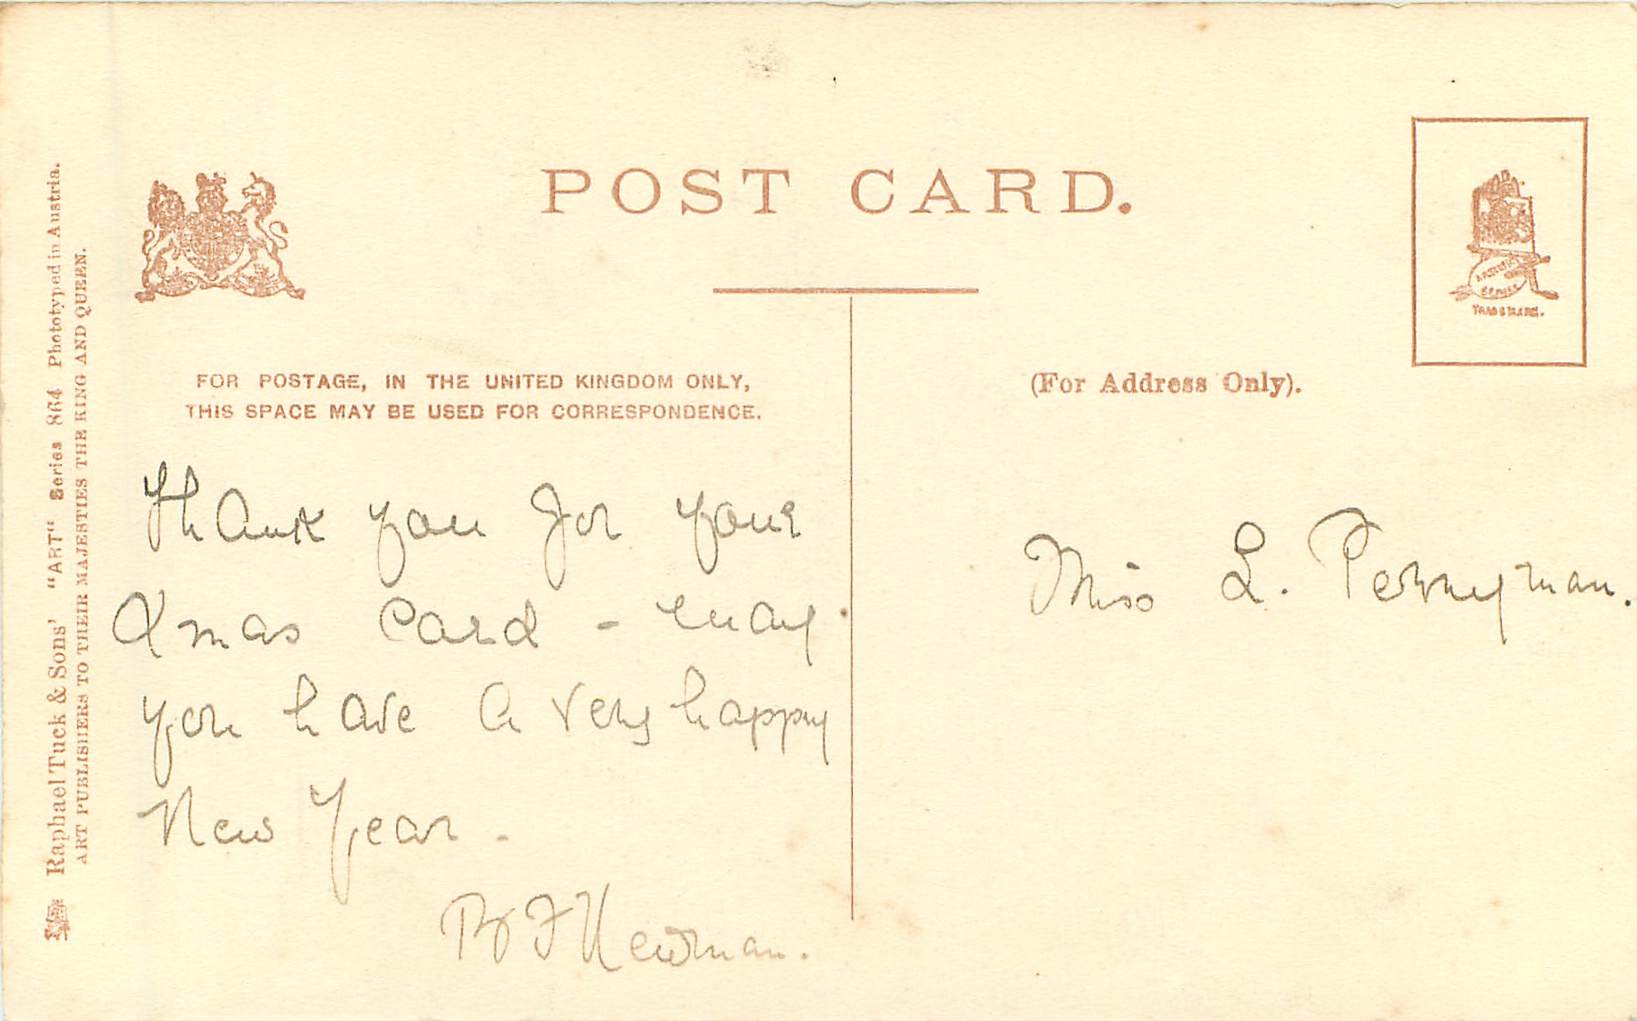 POST CARD.
FOR POSTAGE, IN THE UNITED KINGDOM ONLY,
THIS SPACE MAY BE USED FOR CORRESPONDENCE.
(For Address Only).
TRADE MARK.
Raphael Tuck & Sons' "ART" Series 864 Phototyped in Austria.
ART PUBLISHERS TO THEIR MAJESTIES THE KING AND QUEEN.
Thank you for your
Xmas Card - may
you have a very happy
New Year.
Newman.
Miss L. Perryman.